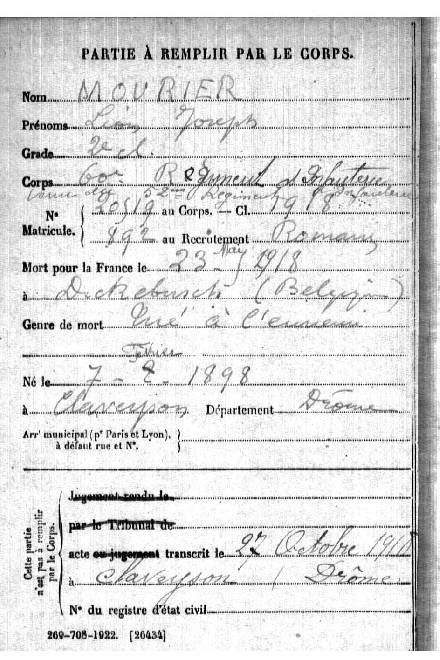 PARTIE À REMPLIR PAR LE CORPS.
Nom MOURIER
Prénoms Léon Joseph
Grade 2e cl.
Corps 60e Régiment d'Infanterie
venu du 52e Régiment d'Infanterie
Nº Matricule. 20519 au Corps. — Cl. 1918
892 au Recrutement Romans
Mort pour la France le 23 May 1918
à Dickebusch (Belgique)
Genre de mort Tué à l'ennemi
Février
Né le 7 - 2 - 1898
à Claveyson Département Drôme
Arrt municipal (pr Paris et Lyon),
à défaut rue et Nº.
Cette partie
n'est pas à remplir
par le Corps.
Jugement rendu le
par le Tribunal de
acte ou jugement transcrit le 27 Octobre 1918
à Claveyson (Drôme)
Nº du registre d'état civil
269-708-1922. [26434]